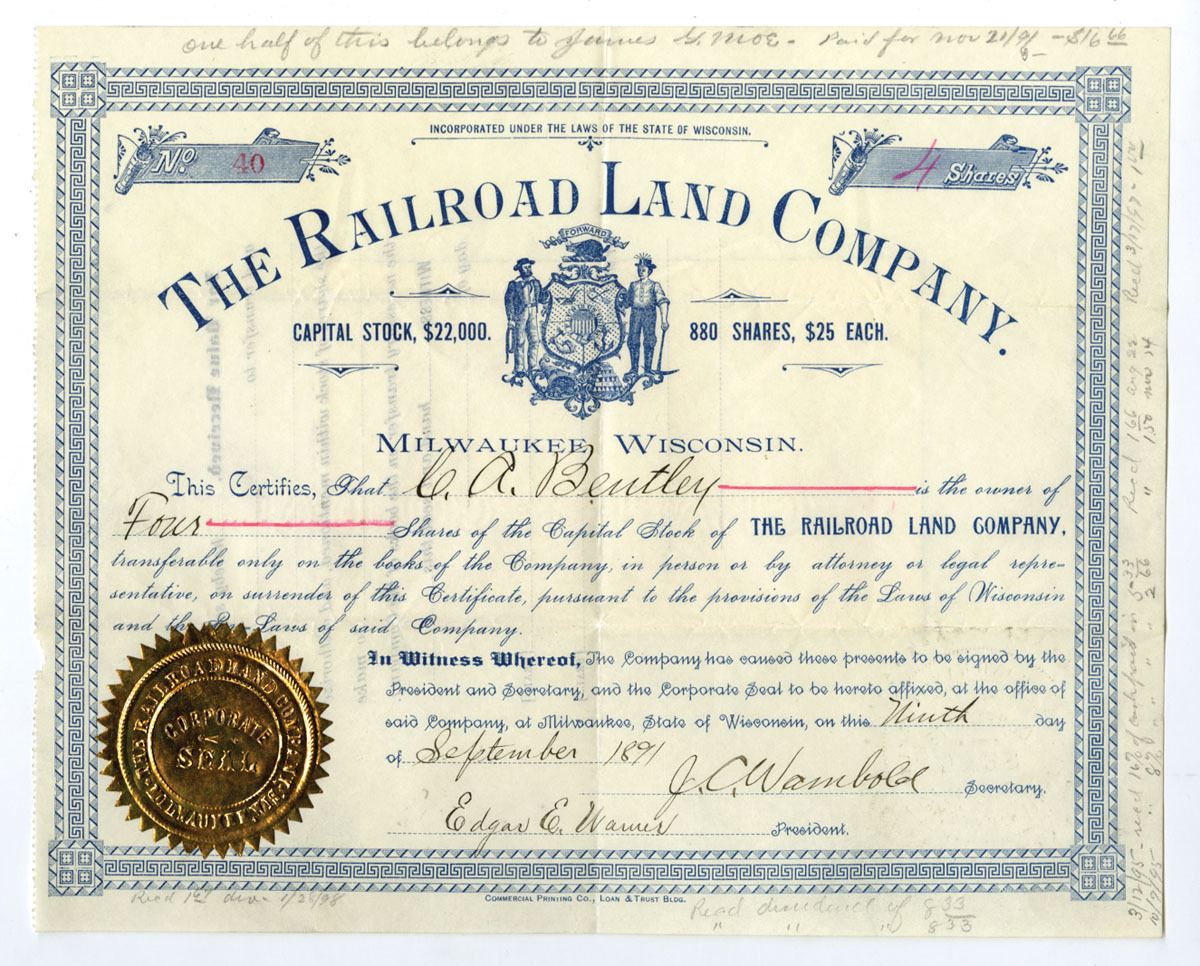 one half of this belongs to James G. Moe - Paid for Nov 21/91 - $16 66
INCORPORATED UNDER THE LAWS OF THE STATE OF WISCONSIN.
No. 40
4 Shares
THE RAILROAD LAND COMPANY.
FORWARD
CAPITAL STOCK, $22,000.
880 SHARES, $25 EACH.
MILWAUKEE, WISCONSIN.
This Certifies, That C. A. Bentley is the owner of
Four Shares of the Capital Stock of THE RAILROAD LAND COMPANY,
transferable only on the books of the Company, in person or by attorney or legal repre-
sentative, on surrender of this Certificate, pursuant to the provisions of the Laws of Wisconsin
and the By-Laws of said Company.
In Witness Whereof, The Company has caused these presents to be signed by the
President and Secretary, and the Corporate Seal to be hereto affixed, at the office of
said Company, at Milwaukee, State of Wisconsin, on this Ninth day
of September 1891
J. C. Wambold Secretary.
Edgar E. Warner President.
THE RAILROAD LAND COMPANY
CORPORATE
SEAL
COMMERCIAL PRINTING CO., LOAN & TRUST BLDG.
Recd div. 1/28/98
Recd dividend of 8 33
" " " 8 33
Recd 1 66 Aug 22 Recd 3/17/97 - 1 00
" 1 50 Nov 14
3/12/95 - recd 16% of in 5 33
10/9/95 " 8% " " " 2 66